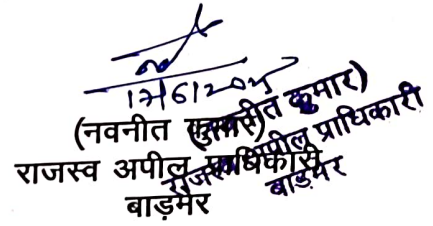 17/6/2025
(नवनीत कुमार)
राजस्व अपील प्राधिकारी
बाड़मेर
(नवनीत कुमार)
राजस्व अपील प्राधिकारी
बाड़मेर